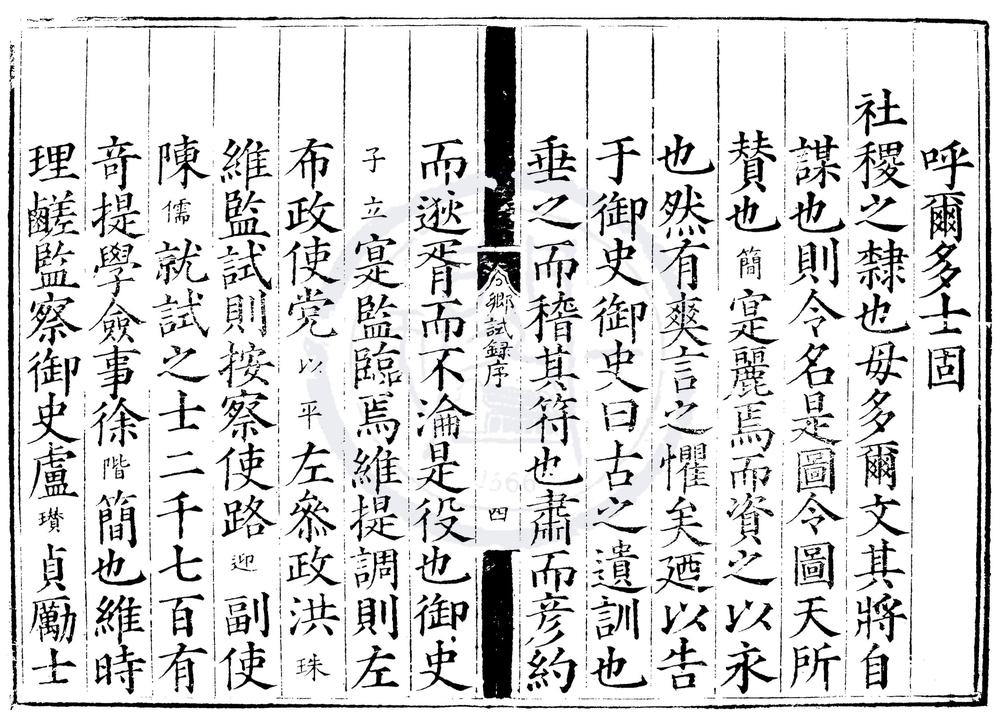 呼爾多士固
社稷之隸也毋多爾文其將自
謀也則令名是圖令圖天所
贊也簡寔麗焉而資之以永
也然有爽言之懼矣廼以告
于御史御史曰古之遺訓也
垂之而稽其符也肅而彦約
鄉試録序
四
而遜胥而不淪是役也御史
子立寔監臨焉維提調則左
布政使党以平左叅政洪珠
維監試則按察使路迎副使
陳儒就試之士二千七百有
奇提學僉事徐階簡也維時
理鹺監察御史盧瓚貞勵士